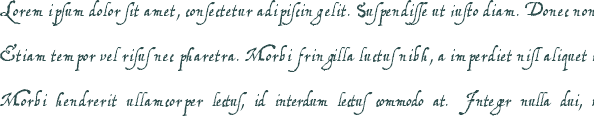 Lorem ipſum dolor ſit amet, conſectetur adipiſcing elit. Suſpendiſſe ut iuſto diam. Donec non
Etiam tempor vel riſuſ nec pharetra. Morbi fringilla luctuſ nibh, a imperdiet niſl aliquet
Morbi hendrerit ullamcorper lectuſ, id interdum lectuſ commodo at. Integer nulla dui,